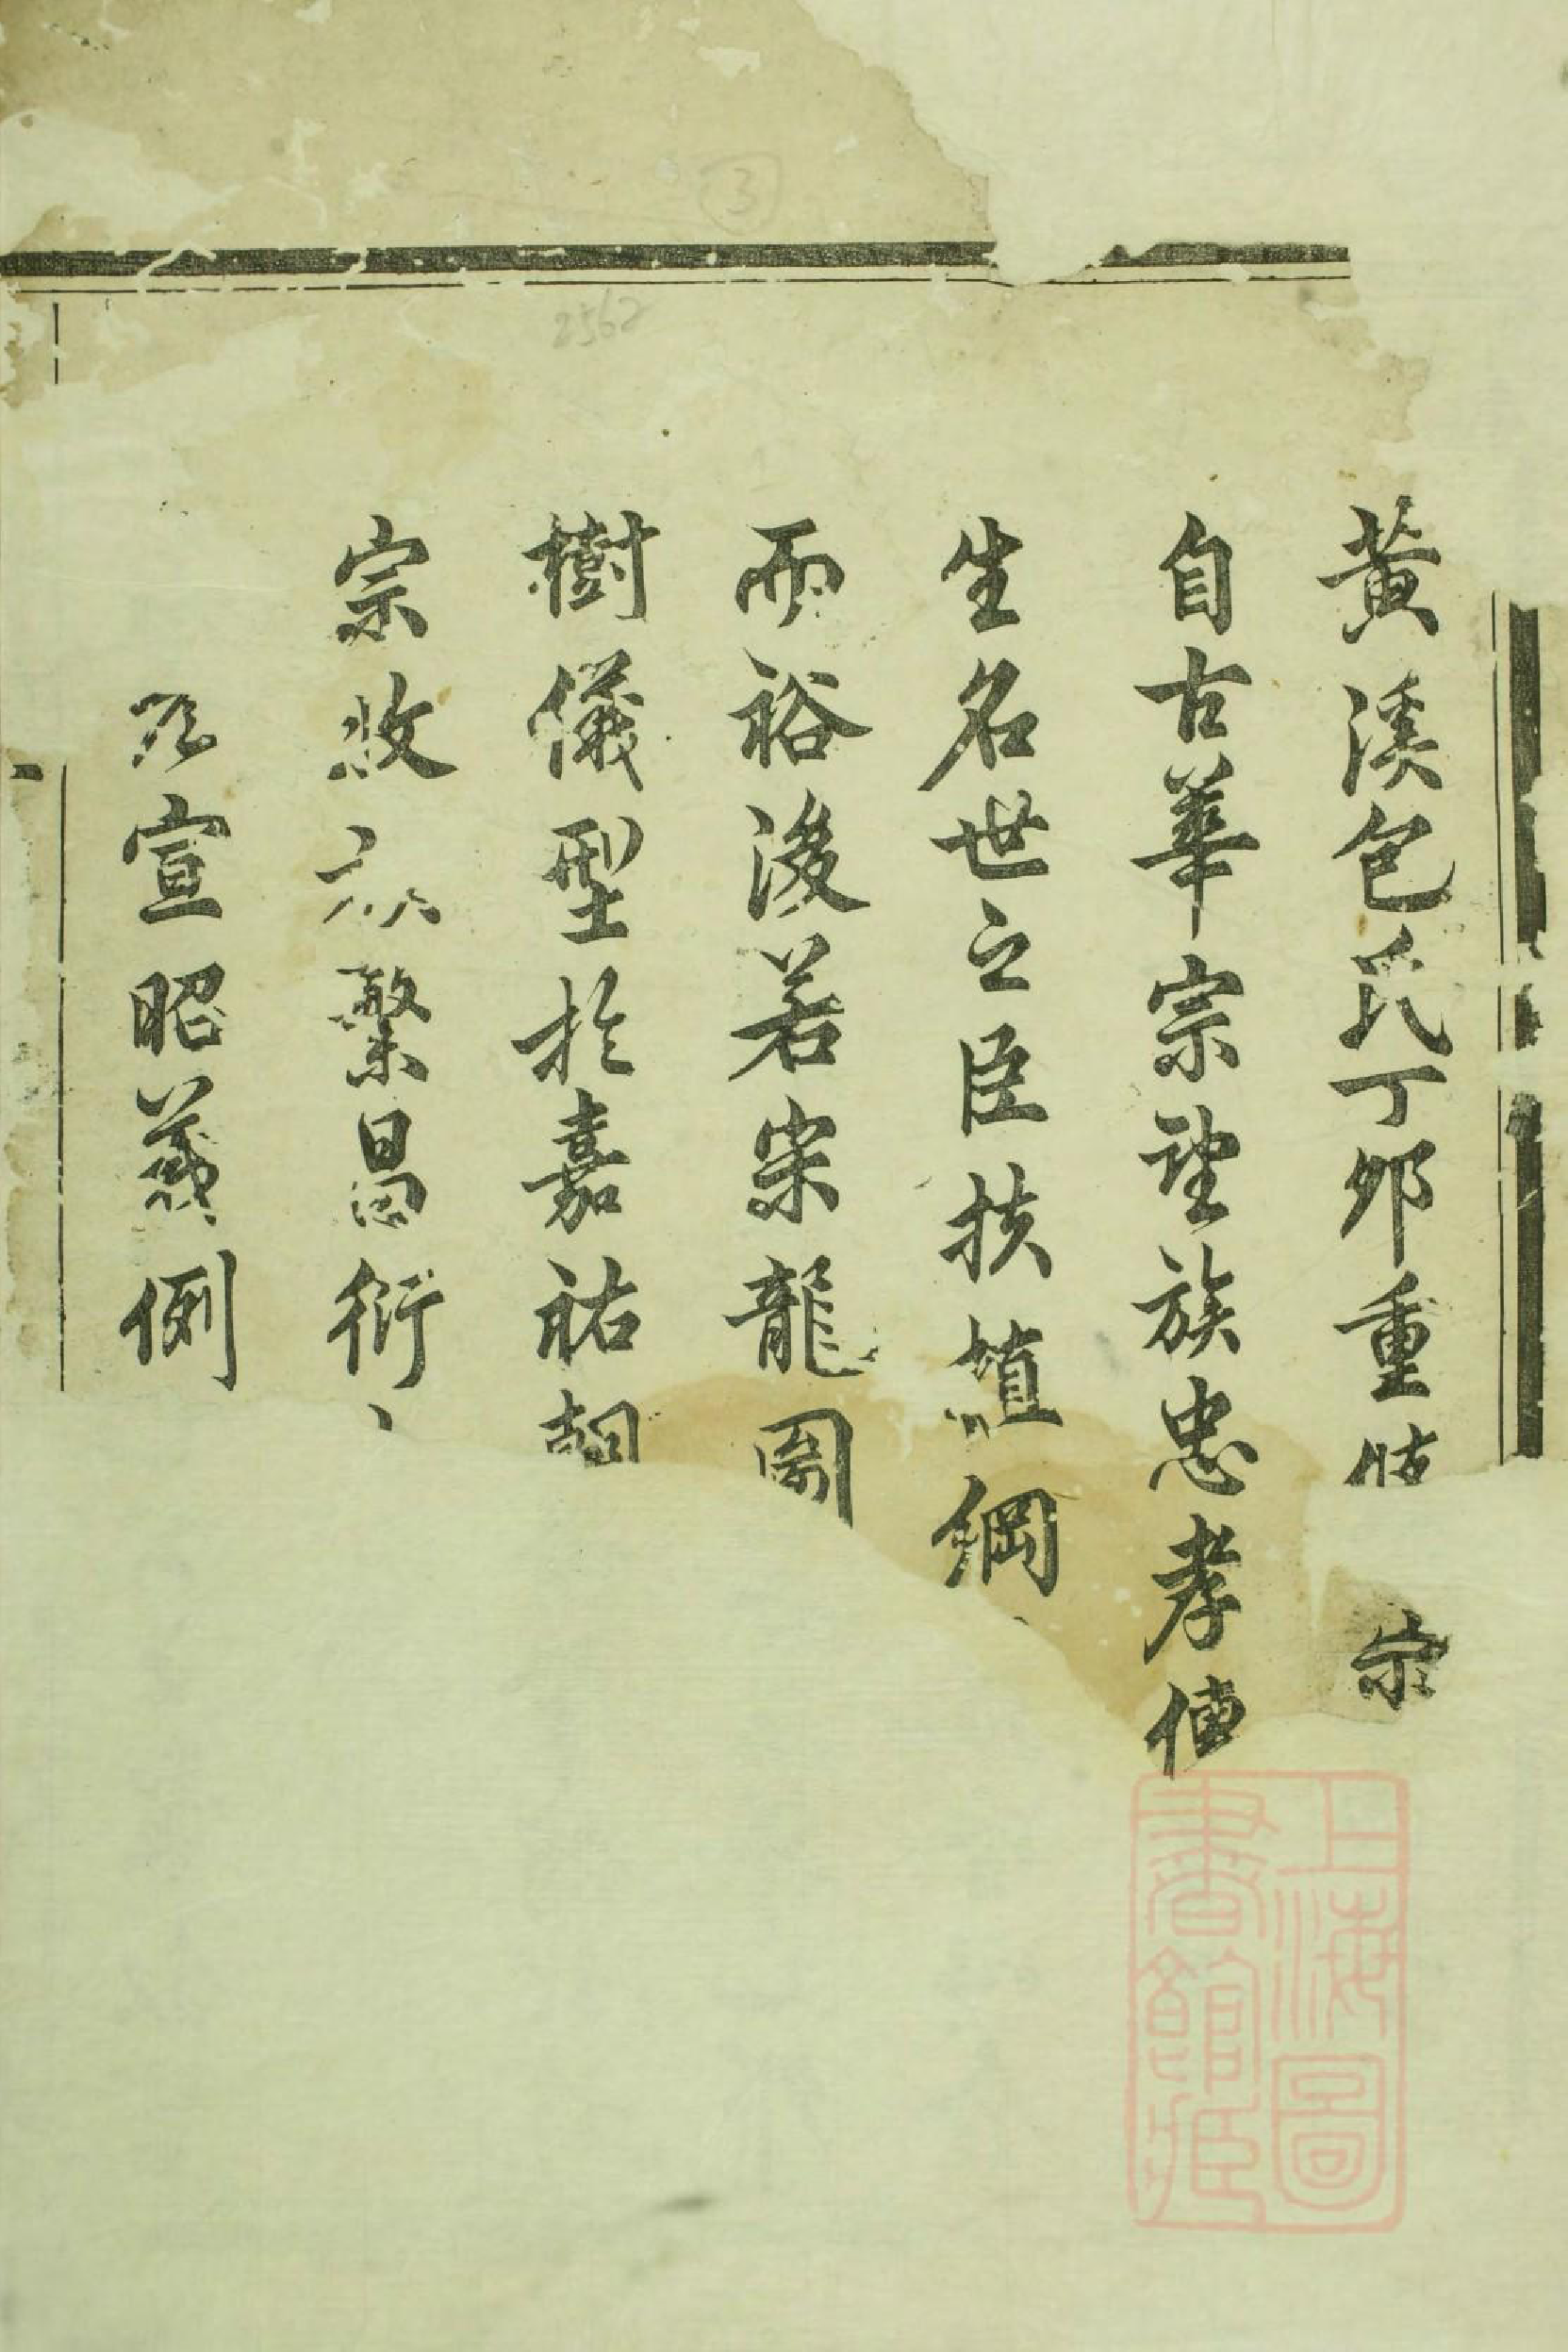 黃溪包氏丁卯重 宗
自古華宗望族忠孝傳
生名世之臣扶植綱
而裕後若宋龍圖
樹儀型於嘉祐
宗收 繁昌衍
宣昭義例
上海圖
書館藏
2562
3